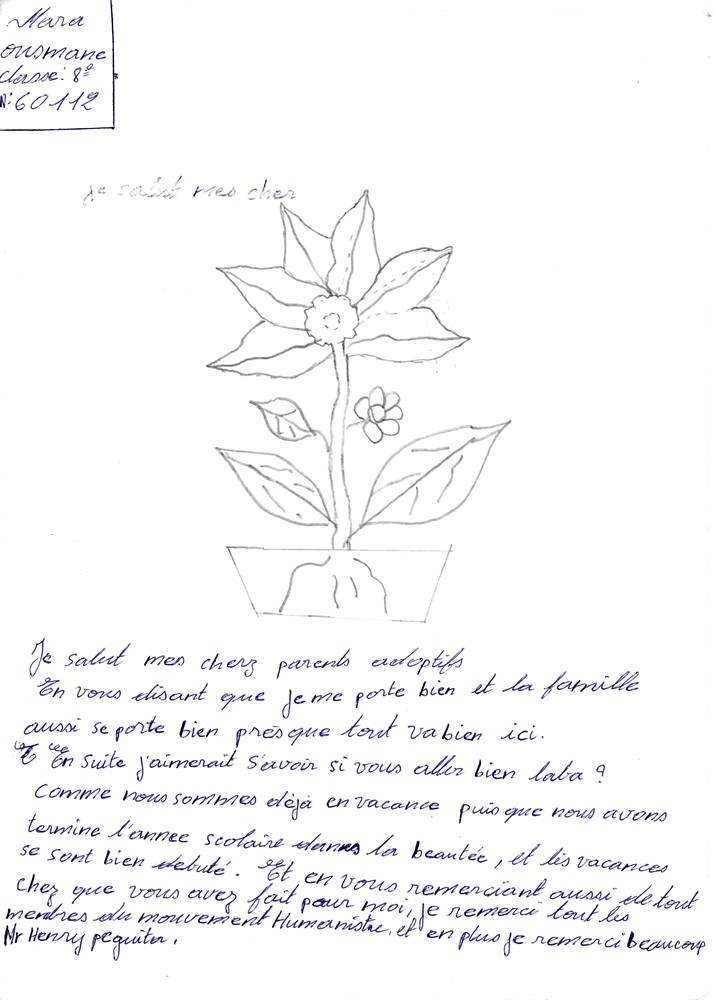 Mara
ousmane
classe: 8e
N: 60112
je salut mes cher
Je salut mes cherz parents adoptifs
En vous disant que je me porte bien et la famille
aussi se porte bien présque tout va bien ici.
En suite j'aimerait s'avoir si vous aller bien laba ?
Comme nous sommes déjà en vacance puisque nous avons
termine l'annee scolaire dans la beautée, et lès vacances
se sont bien debuté. Et en vous remerciant aussi de tout
chez que vous avez fait pour moi, je remerci tout les
menbres du mouvement Humaniste, et en plus je remerci beaucoup
Mr Henry peguiter.